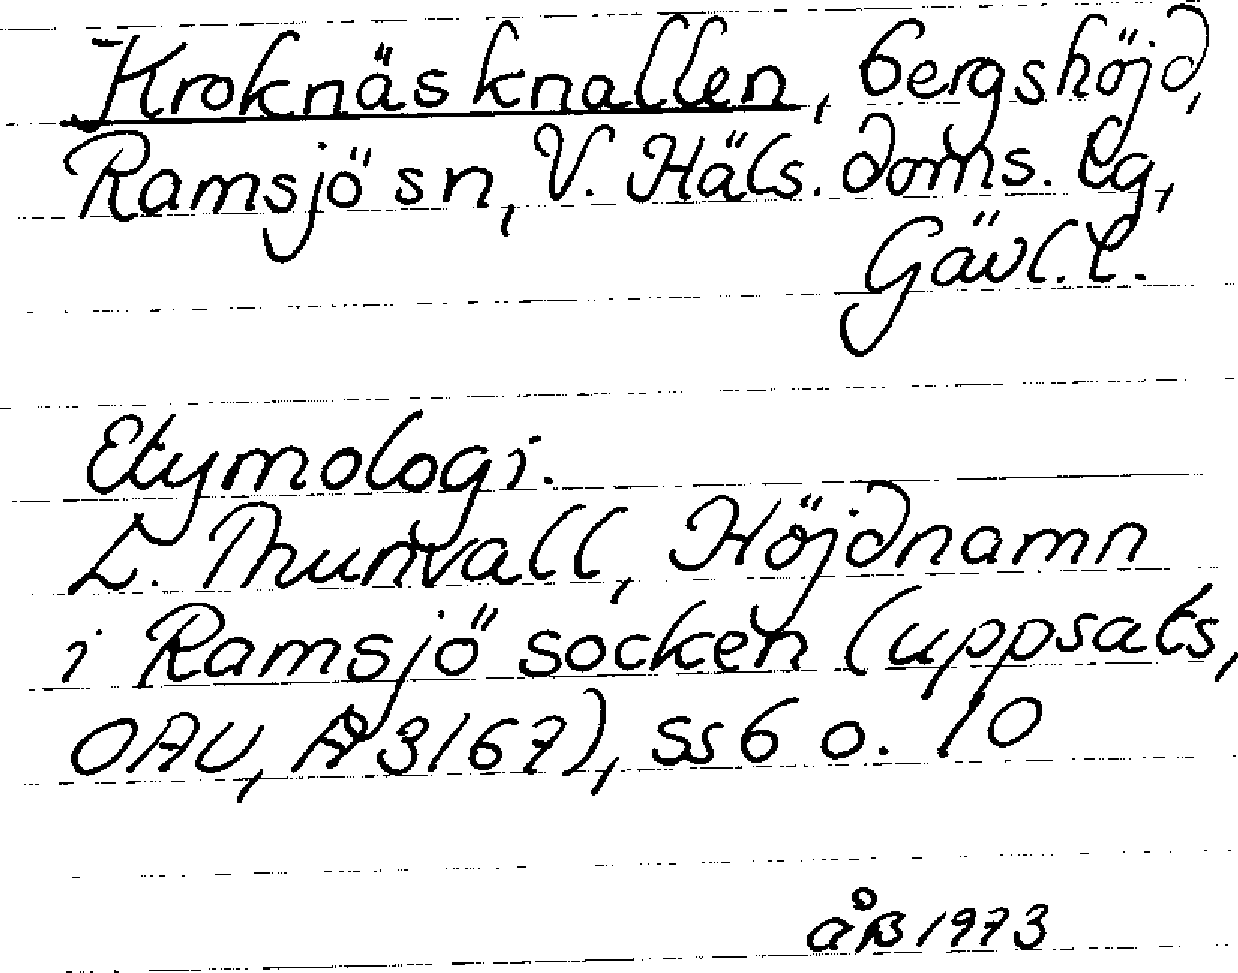 Kroknäsknallen, bergshöjd,
Ramsjö sn, V. Häls. doms. lg,
Gävl. l.
Etymologi.
L. Thunvall, Höjdnamn
i Ramsjö socken (uppsats,
OAU, A 3167), ss 6 o. 10
åB 1973